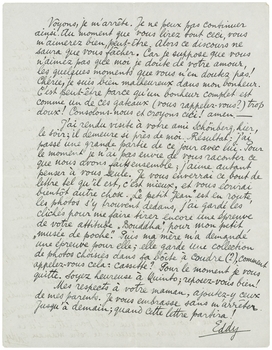 Voyons, je m'arrête. Je ne peux pas continuer
ainsi. Au moment que vous lirez tout ceci, vous
m'aimerez bien peut-être. Alors ce discours ne
saura que vous fâcher. Car je suppose que vous
n'aimez pas que moi je doute de votre amour,
les quelques moments que vous n'en doutez pas!
Chérie, je suis bien malheureux dans mon bonheur.
C'est peut-être parce qu'un bonheur complet est
comme un de ces gateaux (vous rappelez-vous?) trop
doux! Consolons-nous et croyons ceci! amen —
J'ai rendu visite à votre ami Schönberg, hier,
le soir; il demeure si près de moi. Résultat: j'ai
passé une grande partie de ce jour avec lui. Pour
le moment je n'ai pas envie de vous raconter ce
que nous avons fait ensemble; j'aime autant
penser à vous seule. Je vous enverrai ce bout de
lettre tel qu'il est, c'est mieux, et vous écrirai
bientôt autre chose. Le petit Jean est en toutes
les photos s'y trouvent dedans, j'ai gardé les
clichés pour me faire tirer encore une épreuve
de votre attitude "Bouddha" pour mon petit
musée de poche! Puis ma mère m'a demandé
une épreuve pour elle; elle garde une collection
de photos choisies dans sa boîte à coudre (?), comment
appelez-vous cela: cassette? Pour le moment je vous
quitte. Soyez heureuse à Quinto; reposez-vous bien!
Mes respects à votre maman, ajoutez-y ceux
de mes parents. Je vous embrasse sans m'arrêter
jusqu'à demain, quand cette lettre partira!
Eddy